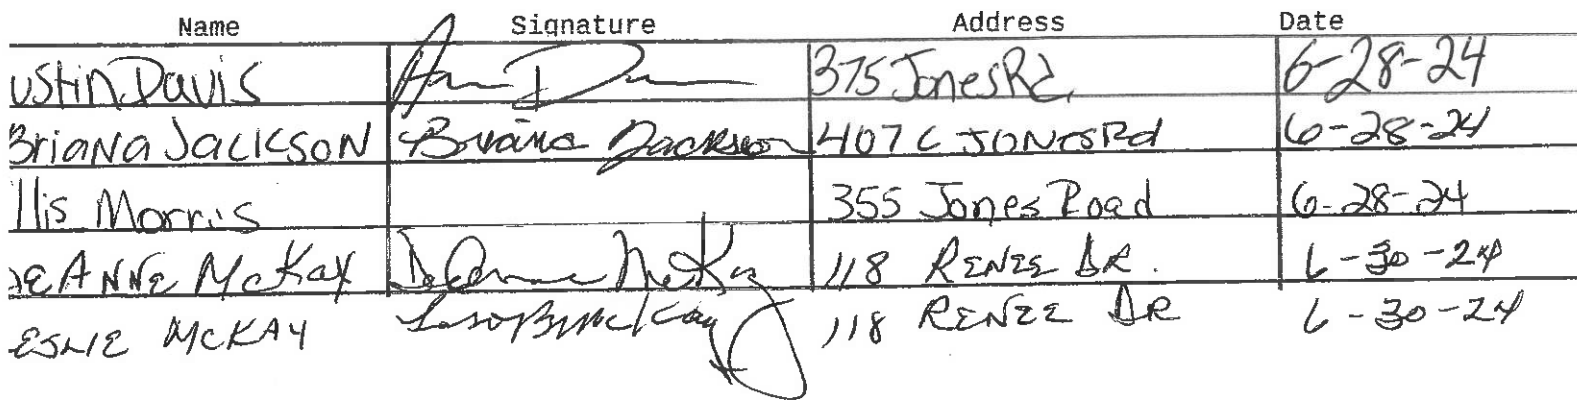 Name Signature Address Date
ustin Davis 375 Jones Rd. 6-28-24
Briana Jackson Briana Jackson 407 C Jones Rd 6-28-24
llis Morris 355 Jones Road 6-28-24
DEANNE McKAY DeAnne McKay 118 RENEE DR. 6-30-24
ESLIE McKAY 118 RENEE DR 6-30-24